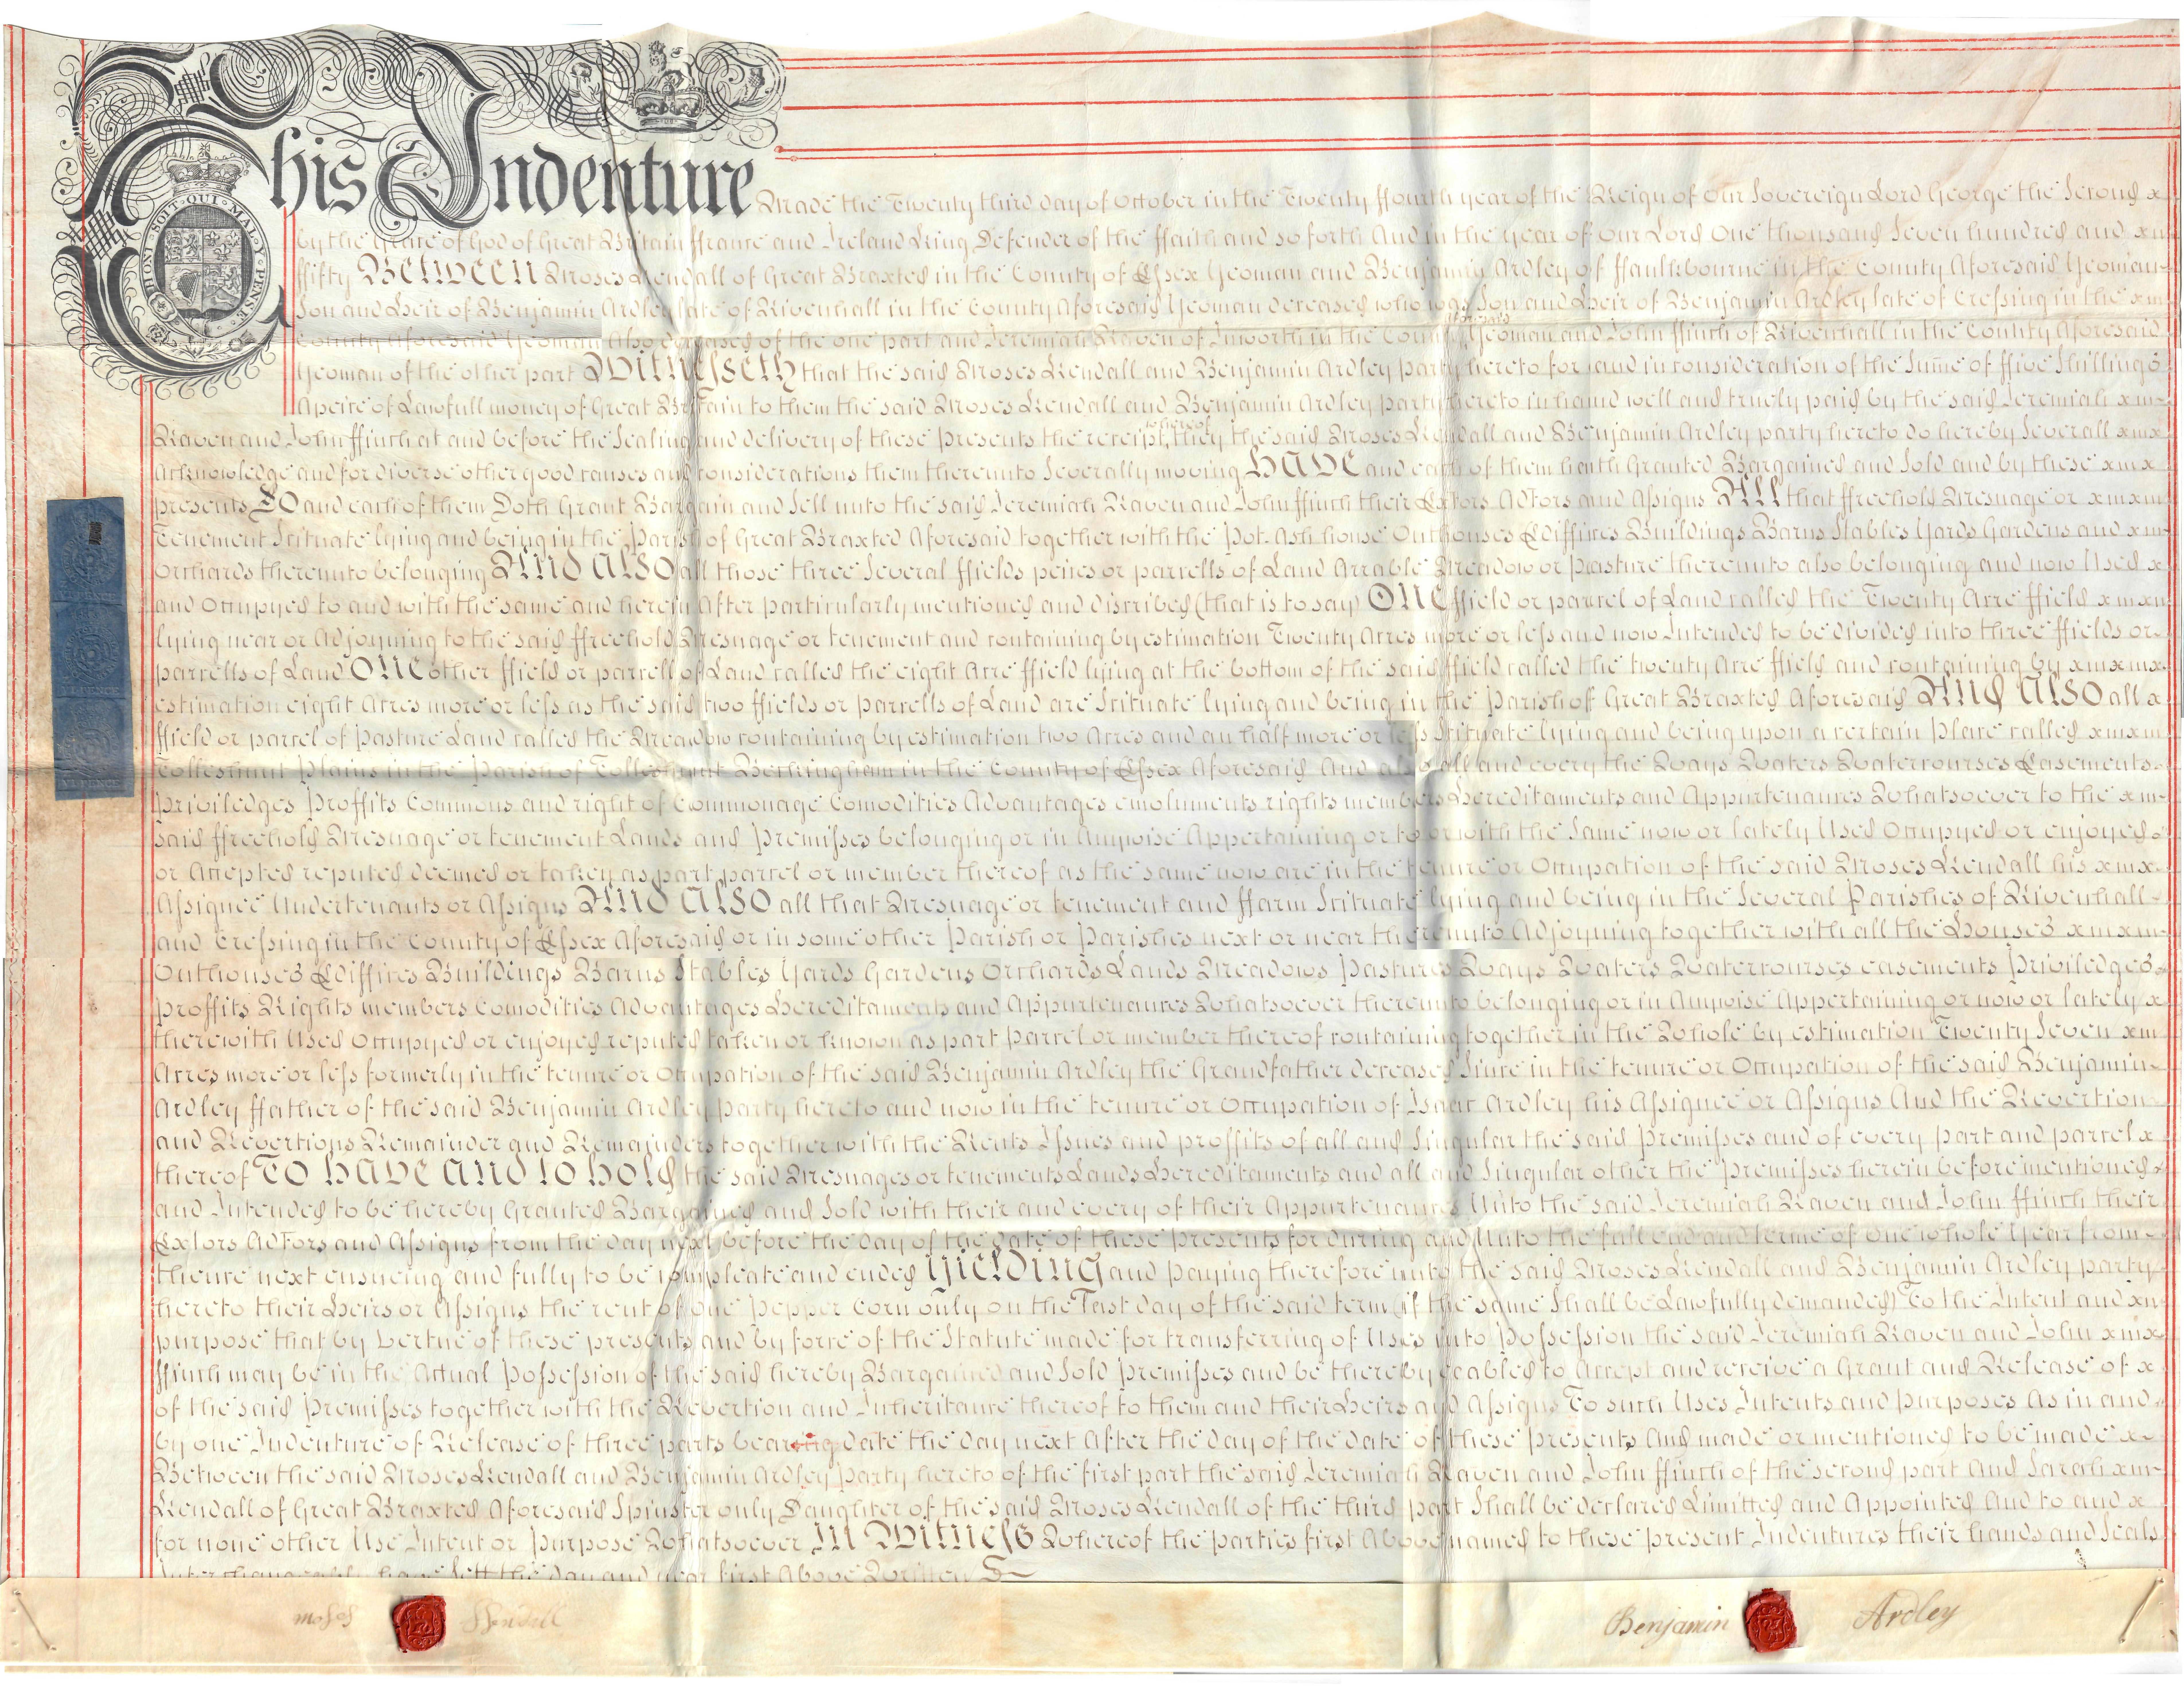 HONI · SOIT · QUI · MAL · Y · PENSE
This Indenture Made the Twenty third day of October in the Twenty ffourth year of the Reign of Our Sovereign Lord George the Second x
by the Grace of God of Great Britain ffrance and Ireland King Defender of the ffaith and so forth And in the year of Our Lord One thousand Seven hundred and xm
ffifty Between Moses Kendall of Great Braxted in the County of Essex Yeoman and Benjamin Ardley of ffaulkbourne in the County Aforesaid Yeoman
Son and Heir of Benjamin Ardley late of Rivenhall in the County Aforesaid Yeoman deceased who was Son and Heir of Benjamin Ardley late of Cressing in the xm
County Aforesaid Yeoman Also deceased of the one part and Jeremiah Raven of Inworth in the County aforesaid Yeoman and John ffinch of Rivenhall in the County Aforesaid
Yeoman of the other part Witnesseth that the said Moses Kendall and Benjamin Ardley party hereto for and in consideration of the Sume of ffive Shillings
Apeice of Lawfull money of Great Britain to them the said Moses Kendall and Benjamin Ardley party hereto in hand well and truely paid by the said Jeremiah xm
Raven and John ffinch at and before the Sealing and delivery of these presents the receipt whereof they the said Moses Kendall and Benjamin Ardley party hereto do hereby Severall xmx
Acknowledge and for diverse other good causes and considerations them thereunto Severally moving Have and each of them hath Granted Bargained and Sold and by these xmx
presents Do and each of them Doth Grant Bargain and Sell unto the said Jeremiah Raven and John ffinch their ExTors AdTors and Assigns All that ffreehold Mesuage or xmxm
Tenement Scituate lying and being in the Parish of Great Braxted Aforesaid together with the Pot-Ash house Outhouses Ediffices Buildings Barns Stables Yards Gardens and xm
Orchards thereunto belonging And Also all those three Several ffields peices or parcells of Land Arrable Meadow or pasture thereunto also belonging and now Used x
and Occupyed to and with the same and herein After particularly mentioned and discribed (that is to say) One ffield or parcel of Land called the Twenty Acre ffield xmxm
lying near or Adjoyning to the said ffreehold Mesuage or tenement and containing by estimation Twenty Acres more or less and now Intended to be divided into three ffields or
parcells of Land One other ffield or parcell of Land called the eight Acre ffield lying at the bottom of the said ffield called the twenty Acre ffield and containing by xmxmx
estimation eight Acres more or less as the said two ffields or parcells of Land are Scituate lying and being in the Parish of Great Braxted Aforesaid And Also all a
ffield or parcel of pasture Land called the Meadow containing by estimation two Acres and an half more or less Scituate lying and being upon a certain place called xmxm
Tolleshunt Plains in the Parish of Tolleshunt Beckingham in the County of Essex Aforesaid And also all and every the Ways Waters Watercourses Easements
Priviledges Proffits Commons and right of Commonage Comodities Advantages emoluments rights members Hereditaments and Appurtenances Whatsoever to the xm
said ffreehold Mesuage or tenement Lands and Premisses belonging or in Anywise Appertaining or to or with the Same now or lately Used Occupyed or enjoyed
or Accepted reputed deemed or taken as part parcel or member thereof as the same now are in the tenure or Occupation of the said Moses Kendall his xmx
Assignee Undertenants or Assigns And Also all that Mesuage or tenement and ffarm Scituate lying and being in the Several Parishes of Rivenhall
and Cressing in the County of Essex Aforesaid or in some other Parish or Parishes next or near thereunto Adjoyning together with all the Houses xmxm
Outhouses Ediffices Buildings Barns Stables Yards Gardens Orchards Lands Meadows Pastures Ways Waters Watercourses easements Priviledges
proffits Rights members Comodities Advantages Hereditaments and Appurtenances Whatsoever thereunto belonging or in Anywise Appertaining or now or lately x
therewith Used Occupyed or enjoyed reputed taken or known as part parcel or member thereof containing together in the Whole by estimation Twenty Seven xm
Acres more or less formerly in the tenure or Occupation of the said Benjamin Ardley the Grandfather deceased Since in the tenure or Occupation of the said Benjamin
Ardley ffather of the said Benjamin Ardley party hereto and now in the tenure or Occupation of Isaac Ardley his Assignee or Assigns And the Revertion
and Revertions Remainder and Remainders together with the Rents Issues and proffits of all and Singular the said Premisses and of every part and parcel x
thereof To have and to hold the said Mesuages or tenements Lands Hereditaments and all and Singular other the Premisses herein before mentioned
and Intended to be hereby Granted Bargained and Sold with their and every of their Appurtenances Unto the said Jeremiah Raven and John ffinch their
ExTors AdTors and Assigns from the day next before the day of the date of these presents for during and Unto the full end and terme of one whole Year from
thence next ensueing and fully to be compleate and ended Yielding and paying therefore unto the said Moses Kendall and Benjamin Ardley party
hereto their Heirs or Assigns the rent of one Pepper Corn only on the Last day of the said term (if the same Shall be Lawfully demanded) To the Intent and xm
purpose that by Vertue of these presents and by force of the Statute made for transferring of Uses into Possession the said Jeremiah Raven and John xmx
ffinch may be in the Actual Possession of the said hereby Bargained and Sold Premisses and be thereby enabled to Accept and receive a Grant and Release of x
of the said Premisses together with the Revertion and Inheritance thereof to them and their Heirs and Assigns To such Uses Intents and Purposes As in and
by one Indenture of Release of three parts bearing date the day next After the day of the date of these presents And made or mentioned to be made x
Between the said Moses Kendall and Benjamin Ardley party hereto of the first part the said Jeremiah Raven and John ffinch of the second part And Sarah xm
Kendall of Great Braxted Aforesaid Spinster only Daughter of the said Moses Kendall of the third part Shall be declared Limitted and Appointed And to and x
for none other Use Intent or Purpose Whatsoever In Witness Whereof the parties first Above named to these present Indentures their hands and Seals
Interchangeably have Sett the day and year first Above Written
moses Kendill Benjamin Ardley